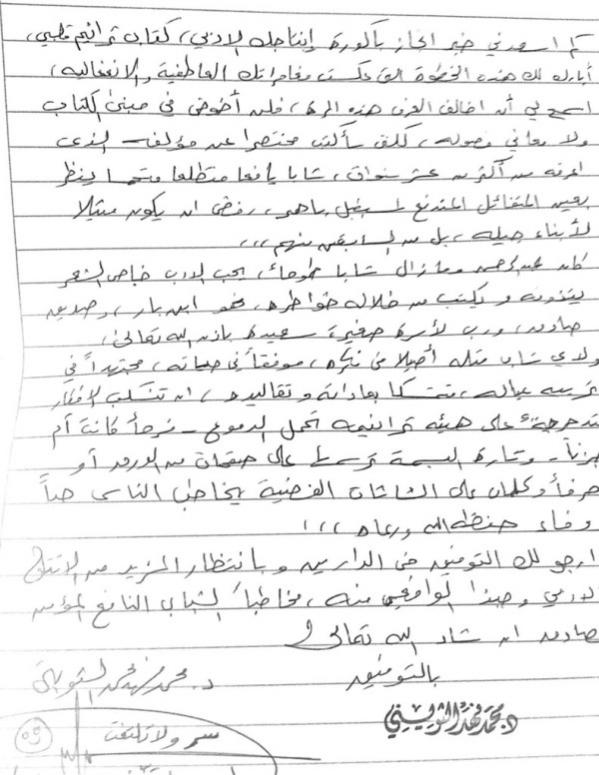 كم اسعدني خبر انجاز باكورة إنتاجك الادبي، كتاب ترانيم قلبي،
أبارك لك هذه الخطوة التي عكست مغامراتك العاطفية والانفعالية،
اسمح لي أن اخالف العرف هذه المرة، فلن أخوض في مبنى الكتاب
ولا معاني فصوله، لكن سأكتب مختصرا عن مؤلفه الذي
اعرفه من أكثر من عشر سنوات، شابا يافعا متطلعا ينظر
بعين المتفائل المندفع لمستقبل باهر، رفض ان يكون مثيلا
لأبناء جيله، بل من السابقين منهم،،،
كان وما زال شابا طموحا، يحب الادب خاص الشعر
يتذوقه ويكتب من خلاله خواطره، هو ابن بار، وصديق
صادق، ورب لأسرة صغيرة سعيدة باذن الله تعالى،
ولدي شاب مثله أصيلا في فكره، موفقاً في حياته، مجتهداً في
تربية عياله، متمسكا بعاداته وتقاليده، ان تنسكب الافكار
متدحرجة على هيئة ترانيمه تحمل الدموع - فرحاً كانت أم
حزناً - وتارة البسمة ترسمها على صفحات من الورود أو
حرفاً وكلمات على الشاشات الفضية يخاطب الناس حباً
وفاء حفظه الله ورعاه،،،!
ارجو لك التوفيق في الدارين وبانتظار المزيد من الانتاج
الادبي وحبذا الواقعي منه، مخاطباً الشباب اليافع المؤمن
الصادق ان شاء الله تعالى
بالتوفيق
د. محمد فهد محمد الثويني
د. محمد فهد الثويني
سر ولا تلتفت
٥٩